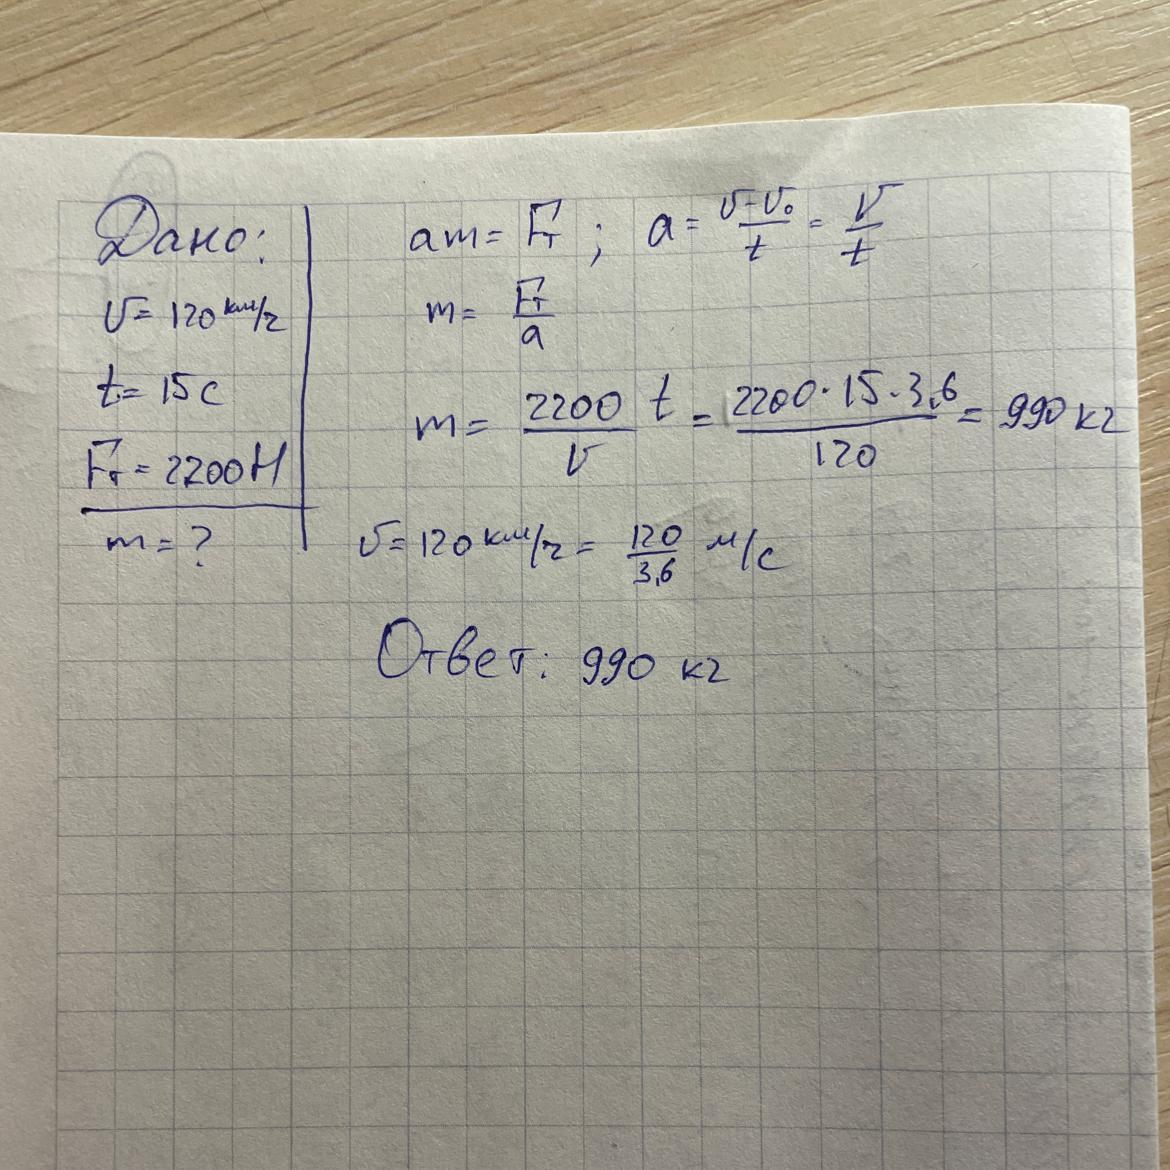 Дано:
υ = 120 км/ч
t = 15 с
Fт = 2200 Н
m = ?
am = Fт ; a = (υ - υ₀)/t = υ/t
m = Fт/a
m = 2200/υ t = (2200 · 15 · 3,6)/120 = 990 кг
υ = 120 км/ч = 120/3,6 м/с
Ответ: 990 кг